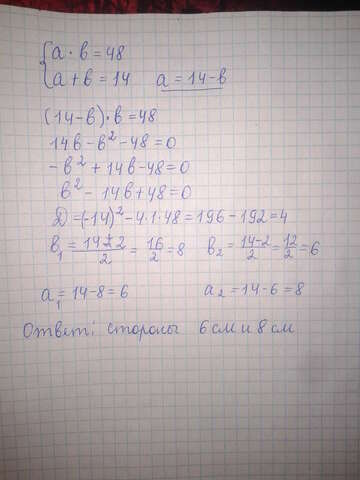 { a · b = 48
a + b = 14 a = 14 - b
(14 - b) · b = 48
14b - b² - 48 = 0
- b² + 14b - 48 = 0
b² - 14b + 48 = 0
D = (-14)² - 4·1·48 = 196 - 192 = 4
b₁ = 14±2/2 = 16/2 = 8 b₂ = 14-2/2 = 12/2 = 6
a₁ = 14 - 8 = 6 a₂ = 14 - 6 = 8
Ответ: стороны 6 см и 8 см